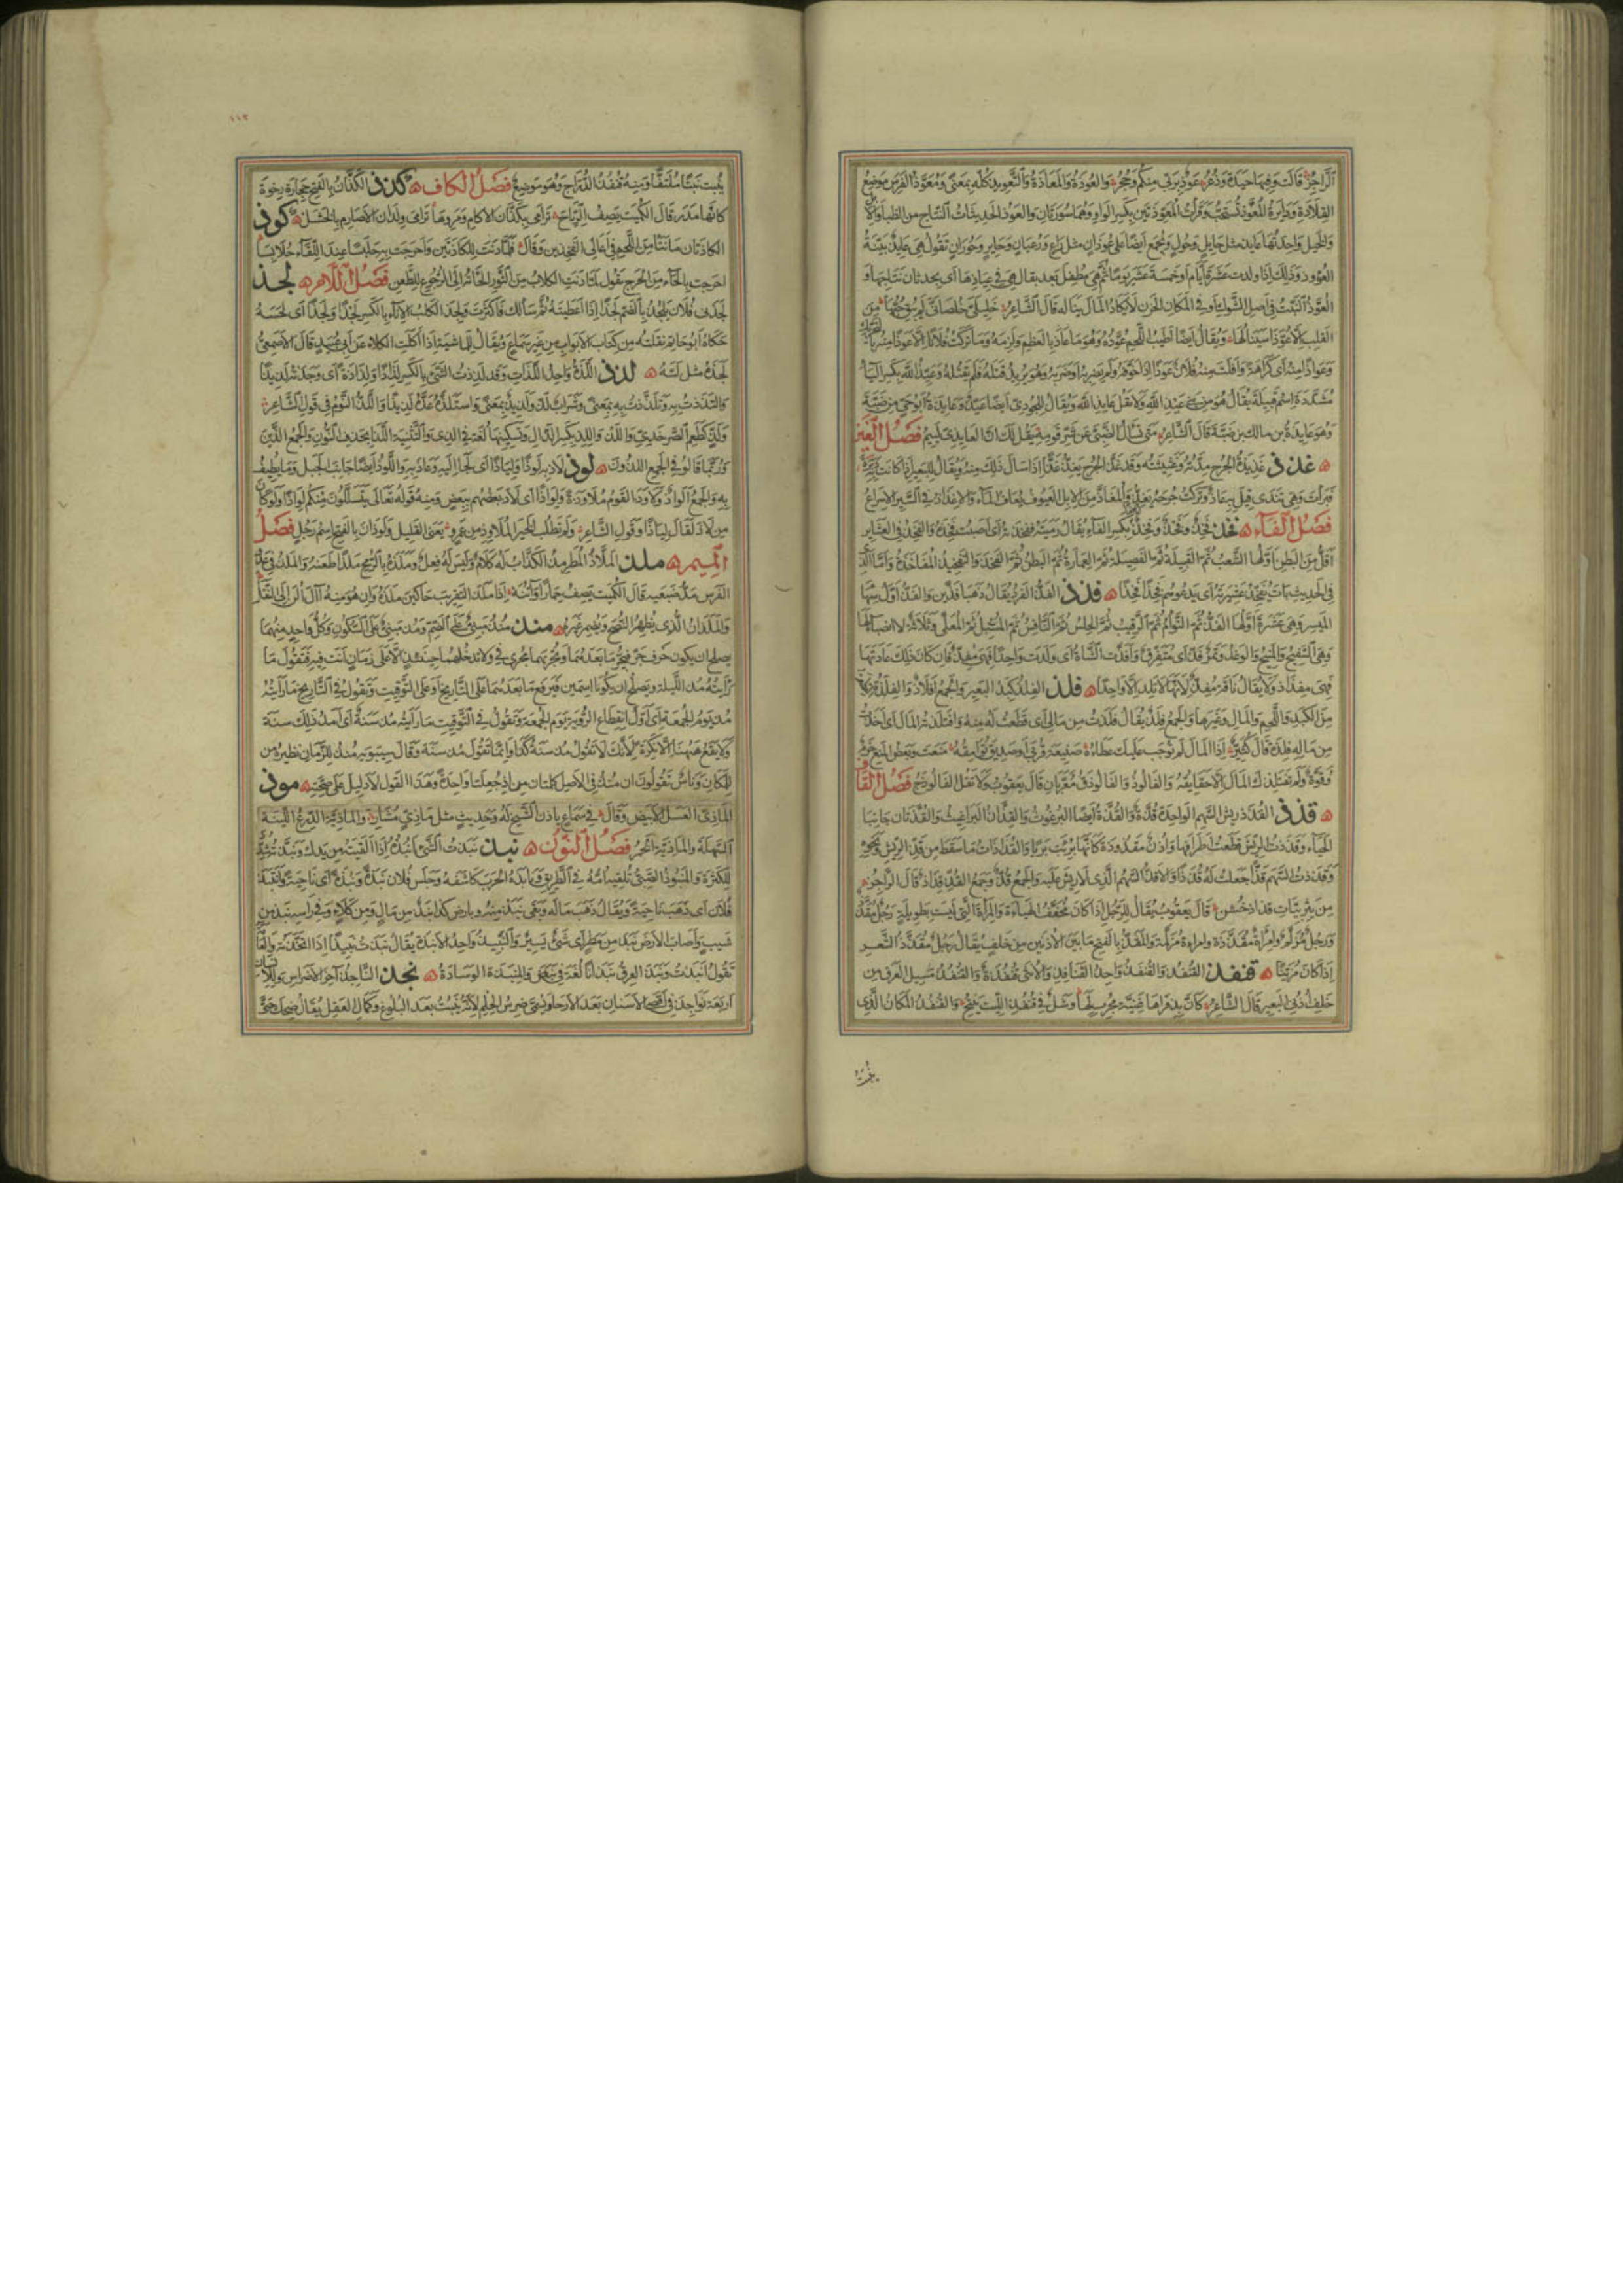 الراجز قالت وفيها حيدة وذعر عوذ بربي منكم وحجر والعوذة والمعاذة والتعويذ كله بمعنى ومعوذ الفرس موضع
القلادة ودايرة المعوذ تستحب وقرات المعوذتين بكسر الواو وهما سورتان والعوذ الحديثات النتاج من الظباء والابل
والخيل واحدتها عايذ مثل حايل وحول وتجمع ايضا على عوذان مثل راع ورعيان وحاير وحوران تقول هي عايذ بينة
العوود وذلك اذا ولدت عشرة ايام او خمسة عشر يوما ثم هي مطفل بعد يقال هي في عياذها اي بحدثان نتاجها و
العوذ النبت في اصل الشوك او في المكان الحزن لا يكاد المال يناله قال الشاعر خليلي خلصاني لم يبق حبها من
القلب الا عوذا سينالها ويقال ايضا اطيب اللحم عوذه وهو ما عاذ بالعظم ولزمه وما تركت فلانا الا عوذا منه بالتحريك
وعواذا منه اي كراهة وافلت منه فلان عوذا اذا خوفه ولم يضربه او ضربه وهو يريد قتله فلم يقتله وعيذ الله بكسر الياء
مشددة اسم قبيلة يقال هو من بني عيذ الله ولا تقل عايذ الله ويقال للجودي ايضا عيذ وعايذة ابو حي من ضبة
وهو عايذة بن مالك بن ضبة قال الشاعر متى تسال الضبي عن شر قومه يقل لك ان العايذي لييم فصل الغين
غذذ غذيذة الجرح مدته وغثيثته وقد غذ الجرح يغذ غذا اذا سال ذلك منه ويقال للبعير اذا كانت به دبرة
فبرات وهي تندى قيل به غاذ وتركت جرحه يغذ والمغاذ من الابل العيوف يعاف الماء والاغذاذ في السير الاسراع
فصل الفاء فخذ فخذ وفخذ وفخذ بكسر الفاء يقال رميته ففخذته اي اصبت فخذه والفخذ في العشاير
اقل من البطن اولها الشعب ثم القبيلة ثم الفصيلة ثم العمارة ثم البطن ثم الفخذ والتفخيذ المفاخذة واما الذي
في الحديث بات يفخذ عشيرته اي يدعوهم فخذا فخذا فذذ الفذ الفرد يقال ذهبا فذين والفذ اول سهام
الميسر وهي عشرة اولها الفذ ثم التوام ثم الرقيب ثم الحلس ثم النافس ثم المسبل ثم المعلى وثلاثة لا انصباء لها
وهي السفيح والمنيح والوغد وتمر فذ اي متفرق وافذت الشاة اي ولدت واحدا فهي مفذ فان كان ذلك عادتها
فهي مفذاذ ولا يقال ناقة مفذ لانها لا تلد الا واحدا فلذ الفلذ كبد البعير والجمع افلاذ والفلذة قطعة
من الكبد واللحم والمال وغيرها والجمع فلذ يقال فلذت له من مالي اي قطعت له منه وافتلذته المال اي اخذت
من ماله فلذة قال كثير اذا المال لم توجب عليك عطاءه صنيعة قربى او صديق توامقه منعت وبعض المنع حزم
وقوة ولم يفتلذك المال الا حقايقه والفالوذ والفالوذق معربان قال يعقوب ولا تقل الفالوذج فصل القاف
قذذ القذذ ريش السهم الواحدة قذة والقذة ايضا البرغوث والقذان البراغيث والقذتان جانبا
الحياء وقذذت الريش قطعت اطرافها واذن مقذوذة كانها بريت بريا والقذاذات ما سقط من قذ الريش ونحوه
وقذذت السهم قذا جعلت له قذذا والاقذ السهم الذي لا ريش عليه والجمع قذ وجمع القذ قذاذ قال الراجز
من يثربيات قذاذ خشن قال يعقوب يقال للرجل اذا كان مخفف الهيءة والمراة التي ليست بطويلة رجل مقذذ
ورجل مزلم وامراة مقذذة وامراة مزلمة والمقذ بالفتح ما بين الاذنين من خلف يقال رجل مقذذ الشعر
اذا كان مزينا قنفذ القنفذ والقنفذ واحد القنافذ والانثى قنفذة والقنفذ مسيل العرق من
خلف اذني البعير قال الشاعر كان بذفراها عنية مجرب لها وشل في قنفذ الليت ينتح والقنفذ المكان الذي
ينبت
١١٢
ينبت نبتا ملتفا ومنه قنفذ الدراج وهو موضع فصل الكاف كذذ الكذان بالفتح حجارة رخوة
كانها مدر قال الكميت يصف الرياح ترامى بكذان الاكام ومروها ترامي ولدان الاصارم بالخشل كوذ
الكاذتان ما نتا من اللحم في اعالي الفخذين وقال فلما دنت للكاذتين واحرجت به حلبسا عند اللقاء حلابسا
احرجت بالحاء من الحرج يقول لما دنت الكلاب من الثور الجاته الى الرجوع للطعن فصل اللام لجذ
لجذني فلان يلجذ بالضم لجذا اذا اعطيته ثم سالك فاكثر ولجذ الكلب الاناء بالكسر لجذا ولجذا اي لحسه
حكاه ابو حاتم نقلته من كتاب الابواب من غير سماع ويقال للماشية اذا اكلت الكلا عن ابي عبيد قال الاصمعي
لجذه مثل لسه لذذ اللذة واحد اللذات وقد لذذت الشيء بالكسر لذاذا ولذاذة اي وجدته لذيذا
والتذذت به وتلذذت به بمعنى وشراب لذ ولذيذ بمعنى واستلذه عده لذيذا واللذ النوم في قول الشاعر
ولذ كطعم الصرخدي واللذ واللذ بكسر الذال وتسكينها لغة في الذي والتثنية اللذا بحذف النون والجمع الذين
وربما قالوا في الجمع اللذون لوذ لاذ به لوذا ولياذا اي لجا اليه وعاذ به واللوذ ايضا جانب الجبل وما يطيف
به والجمع الواذ ولاوذ القوم ملاوذة ولواذا اي لاذ بعضهم ببعض ومنه قوله تعالى يتسللون منكم لواذا ولو كان
من لاذ لقال لياذا وقول الشاعر ولم تطلب الخير الملاوذ من عمرو يعني القليل ولوذان بالفتح اسم رجل فصل
الميم ملذ الملاذ المطرمذ الكذاب له كلام وليس له فعل وملذه بالرمح ملذا طعنه والملذ في عدو
الفرس مد ضبعيه قال الكميت يصف حمارا واتنه اذا ملذ التقريب حاكين ملذه وان هو منه آل الن الى النقل
والملذان الذي يظهر النصح ويضمر غيره منذ منذ مبني على الضم ومذ مبني على السكون وكل واحد منهما
يصلح ان يكون حرف جر فتجر ما بعدهما وتجريهما مجرى في ولا تدخلهما حينئذ الا على زمان انت فيه فتقول ما
رايته مذ الليلة ويصلح ان يكونا اسمين فترفع ما بعدهما على التاريخ او على التوقيت وتقول في التاريخ ما رايته
مذ يوم الجمعة اي اول انقطاع الروية يوم الجمعة وتقول في التوقيت ما رايته مذ سنة اي امد ذلك سنة
ولا يقع ههنا الا نكرة لانك لا تقول مذ سنة كذا وانما تقول مذ سنة وقال سيبويه منذ للزمان نظيره من
للمكان وناس يقولون ان منذ في الاصل كلمتان من اذ جعلتا واحدة وهذا القول لا دليل على صحته موذ
الماذي العسل الابيض وقال في سماع ياذن الشيخ له وحديث مثل ماذي مشار والماذية الدرع اللينة
السهلة والماذية الخمر فصل النون نبذ نبذت الشيء انبذه اذا القيته من يدك ونبذته شدد
للكثرة والمنبوذ الصبي تلقيه امه في الطريق ونابذه الحرب كاشفه وجلس فلان نبذة ونبذة اي ناحية وانتبذ
فلان اي ذهب ناحية ويقال ذهب ماله وبقي نبذ منه وبارض كذا نبذ من مال ومن كلاء وفي راسه نبذ من
شيب واصاب الارض نبذ من مطر اي شيء يسير والنبيذ واحد الانبذة يقال نبذت نبيذا اذا اتخذته والعامة
تقول انبذت ونبذ العرق نبذانا لغة في نبض والمنبذة الوسادة نجذ الناجذ آخر الاضراس وللانسان
اربعة نواجذ في اقصى الاسنان بعد الارحاء ويسمى ضرس الحلم لانه ينبت بعد البلوغ وكمال العقل يقال ضحك حتى